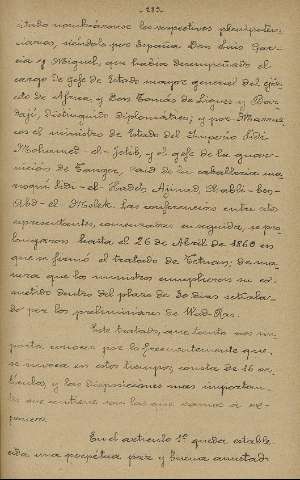 -292-
tado nombráronse los respectivos plenipoten-
ciarios, siéndolo por España Don Luis Gar-
cía y Miguel, que había desempeñado el
cargo de Gefe de Estado mayor general del ejér-
cito de Africa, y Don Tomás de Ligues y Bar-
dají, distinguido diplomático; y por Marrue-
cos el ministro de Estado del Imperio Sidi-
Mohamed-el-Jetib, y el gefe de la guar-
nición de Tanger, caid de la caballería ma-
rroquí Sidi-el-Hadeh Ajimad, Chabli-ben-
Abd-el-Malek. Las conferencias entre estos
representantes, comenzadas en seguida, se pro-
longaron hasta el 26 de Abril de 1860 en
que se firmó el tratado de Tetuan; de ma-
nera que los ministros cumplieron su co-
metido dentro del plazo de 30 dias señala-
do por los preliminares de Wad-Ras.
Este tratado, que tanto nos im-
porta conocer por lo frecuentemente que
se invoca en estos tiempos, consta de 16 ar-
tículos, y las disposiciones mas importan-
tes que contiene son las que vamos á ex-
poner.
En el artículo 1º queda estable
cida una perpétua paz y buena amistad